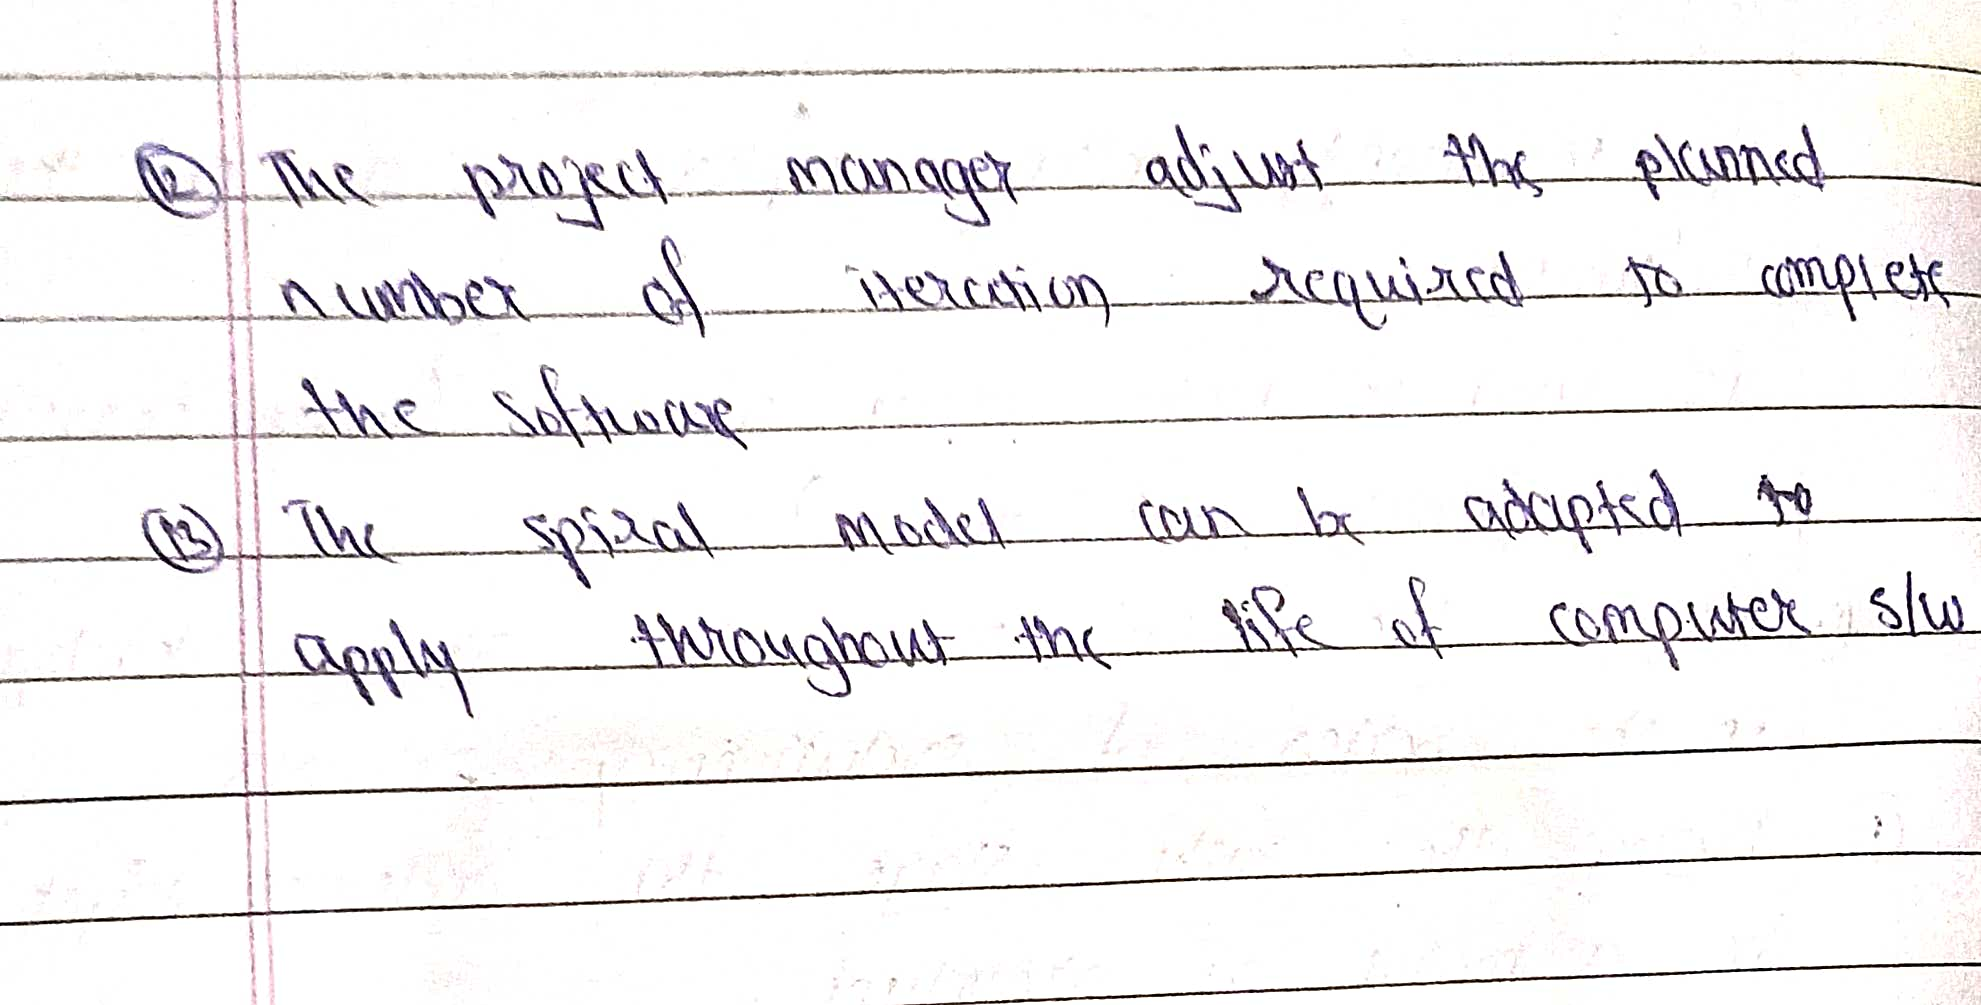 ⑫ The project manager adjust the planned
number of iteration required to complete
the software
⑬ The spiral model can be adapted to
apply throughout the life of computer s/w